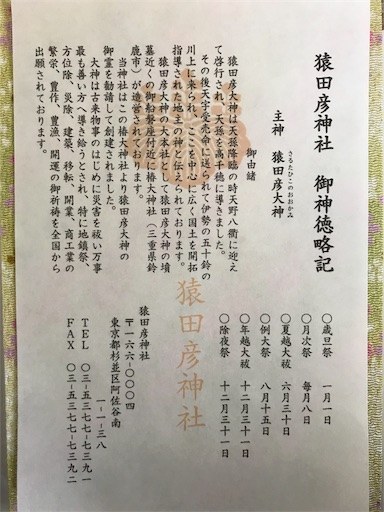 猿田彦神社　御神徳略記
さるたひこのおおかみ
主神　猿田彦大神
御由緒
猿田彦大神は天孫降臨の時天野八衢に迎え
て啓行され、天孫を高千穂に導きました。
その後天宇受売命に送られて伊勢の五十鈴の
川上に来られ、ここを中心に広く国土を開拓
指導された地主の神と伝えられております。
猿田彦大神の大本社として猿田彦大神の墳
墓近くの御船磐座付近に椿大神社（三重県鈴
鹿市）が造営されております。
当神社はこの椿大神社より猿田彦大神の
御霊を勧請して創建されました。
大神は古来物事のはじめに災害を祓い万事
最も善い方へ導き給うとされ、特に地鎮祭、
方位除、災除、建築、移転、開業、商工業の
繁栄、豊作、豊漁、開運の御祈祷を全国から
出願されております。
〇歳旦祭　一月一日
〇月次祭　毎月八日
〇夏越大祓　六月三十日
〇例大祭　八月十五日
〇年越大祓　十二月三十一日
〇除夜祭　十二月三十一日
猿田彦神社
猿田彦神社
〒一六六-〇〇〇四
東京都杉並区阿佐谷南
一-一-三八
ＴＥＬ　〇三-五三七七-七三九一
ＦＡＸ　〇三-五三七七-七三九二